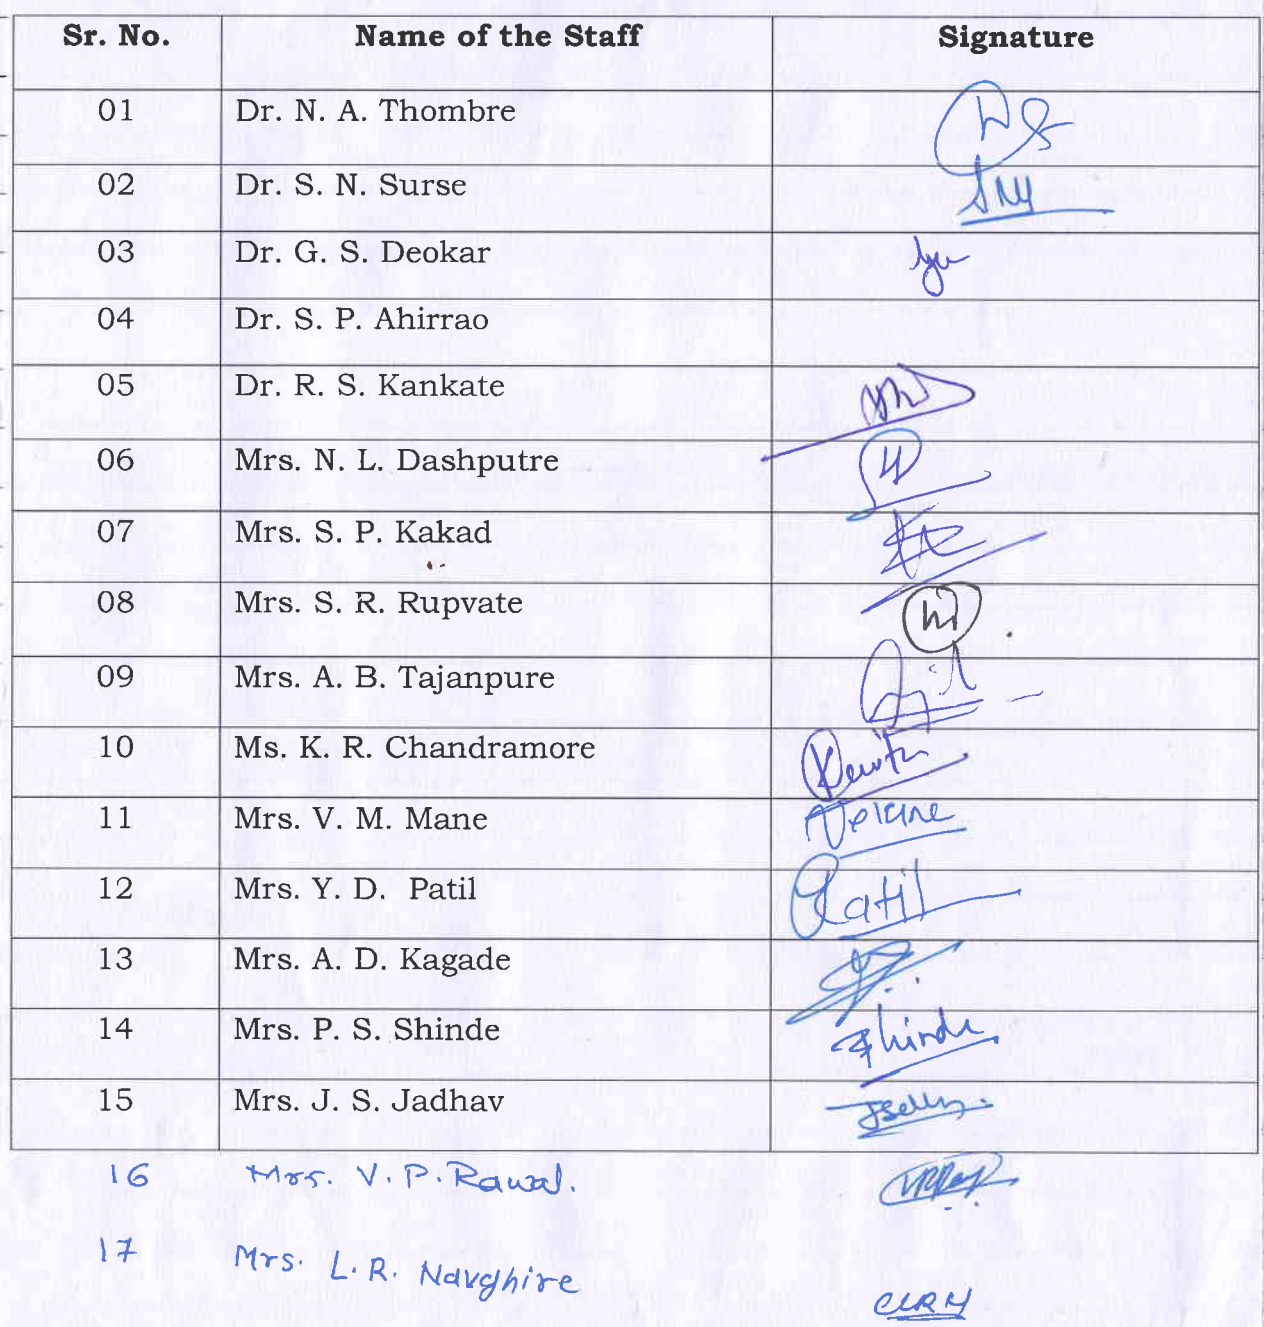 Sr. No. Name of the Staff Signature
01 Dr. N. A. Thombre
02 Dr. S. N. Surse
03 Dr. G. S. Deokar
04 Dr. S. P. Ahirrao
05 Dr. R. S. Kankate
06 Mrs. N. L. Dashputre
07 Mrs. S. P. Kakad
08 Mrs. S. R. Rupvate
09 Mrs. A. B. Tajanpure
10 Ms. K. R. Chandramore
11 Mrs. V. M. Mane
12 Mrs. Y. D. Patil Patil
13 Mrs. A. D. Kagade
14 Mrs. P. S. Shinde Shinde
15 Mrs. J. S. Jadhav
16 Mrs. V. P. Rawal.
17 Mrs. L. R. Navghire